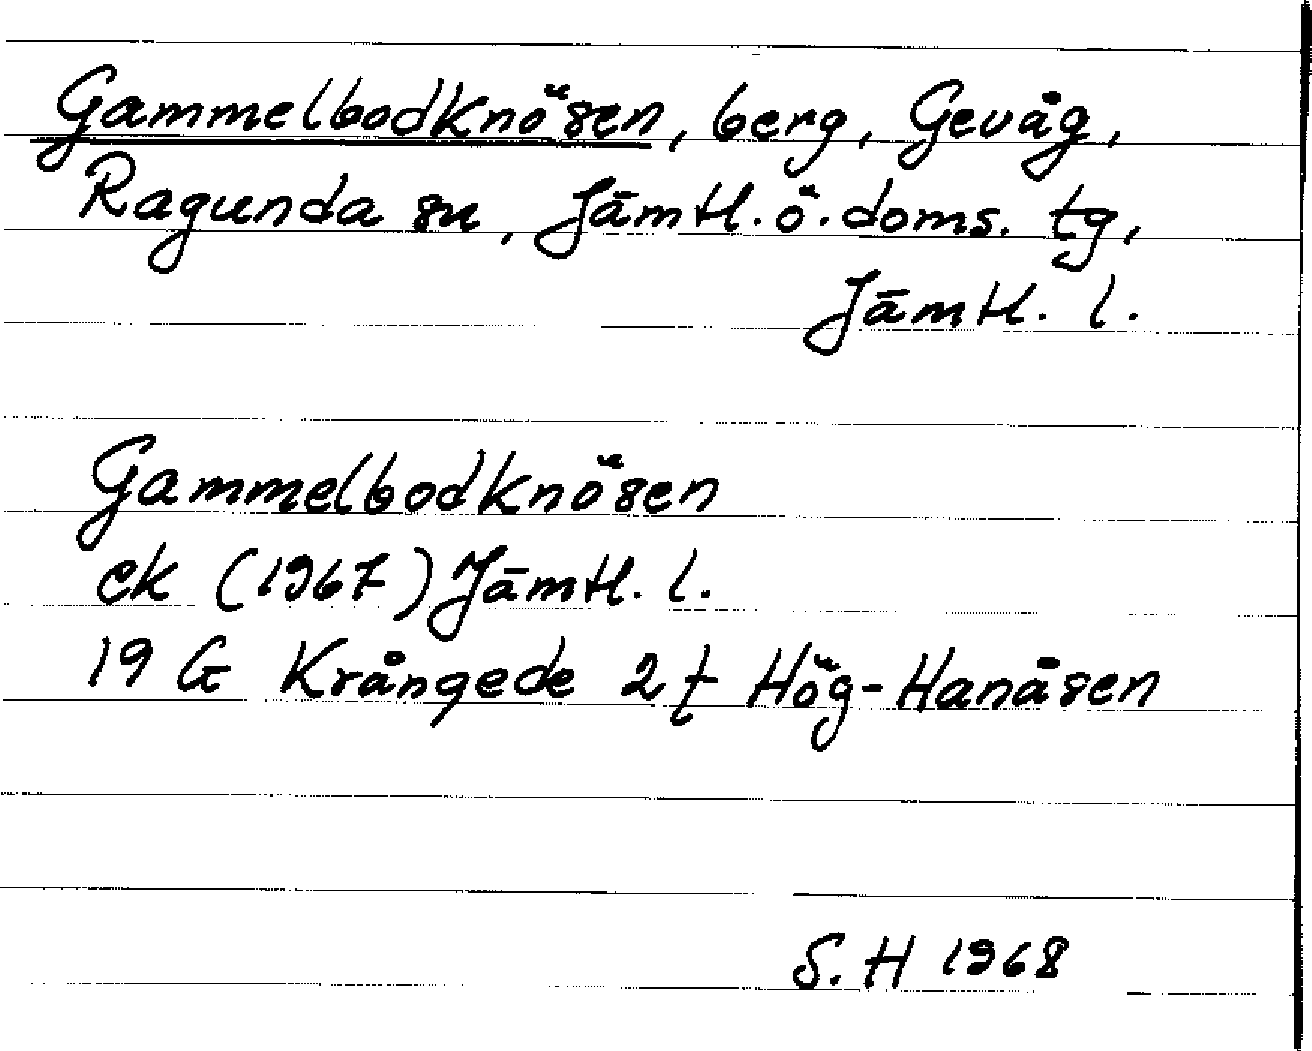 Gammelbodknösen, berg, Gevåg,
Ragunda sn, Jämtl. ö. doms. tg,
Jämtl. l.
Gammelbodknösen
ek (1967) Jämtl. l.
19 G Krångede 2f Hög-Hanåsen
S. H 1968